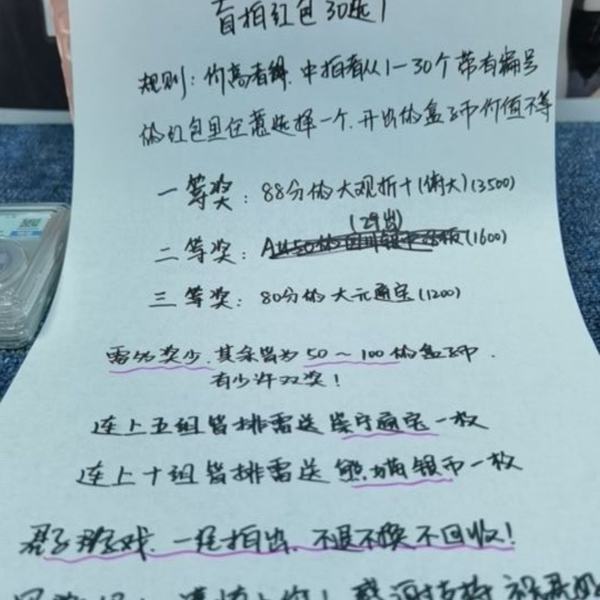 盲拍红包30选1
规则：价高者得，中拍者从1—30个带有编号
的红包里任意选择一个，开出的盒子币价值不等
一等奖：88分的大观折十（俏大）(3500)
(29出)
二等奖：(1600)
三等奖：80分的大元通宝(1200)
雷多奖少，其余皆为50～100的盒子币，
有少许双奖！
连上五组皆排雷送崇宁通宝一枚
连上十组皆排雷送熊猫银币一枚
君子游戏，一经拍出，不退不换不回收！